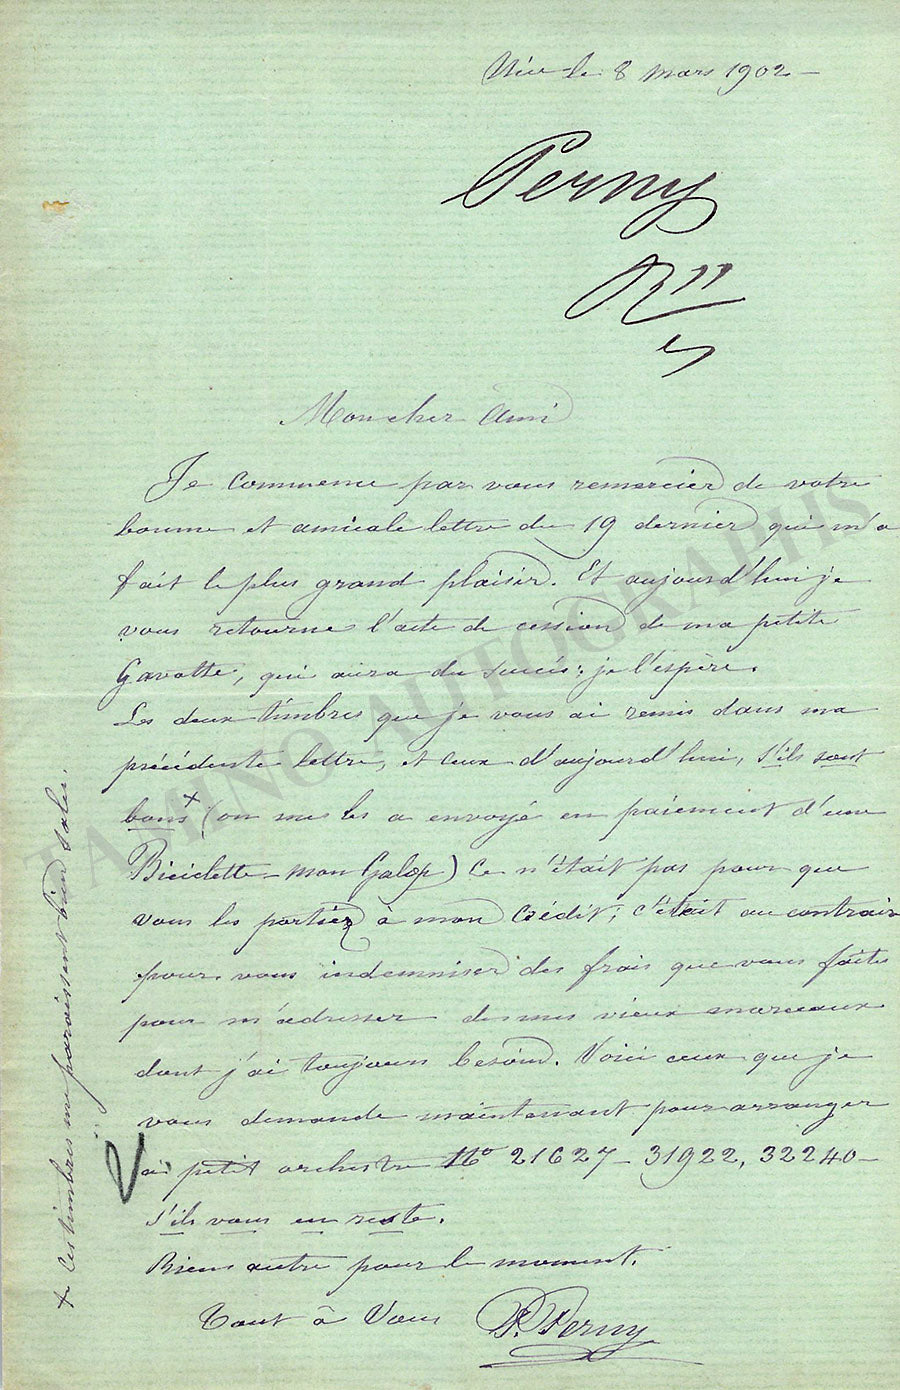 Nice le 8 Mars 1902 —
Perny
R 11
Mon cher Ami
Je commence par vous remercier de votre
bonne et amicale lettre du 19 dernier qui m'a
fait le plus grand plaisir. Et aujourd'hui je
vous retourne l'acte de cession de ma petite
Gavotte, qui aura du succès; je l'espère.
Les deux timbres que je vous ai remis dans ma
précédente lettre, et ceux d'aujourd'hui, s'ils sont
bons + (on me les a envoyé en paiement d'une
Biciclette - mon Galop) Ce n'était pas pour que
vous les portiez à mon Crédit; c'était au contraire
pour vous indemniser des frais que vous faites
pour m'adresser de mes vieux morceaux
dont j'ai toujours besoin. Voici ceux que je
vous demande maintenant pour arranger
à petit orchestre Nos 21627 - 31922, 32240 -
s'ils vous en reste.
Rien autre pour le moment.
Tout à Vous P. Perny
+ Ces timbres me paraissent bien
TAMINO AUTOGRAPHS